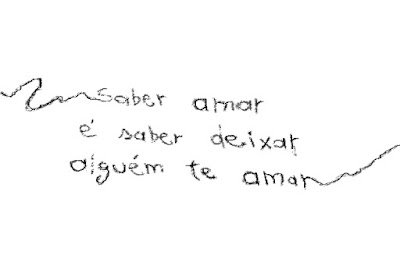 saber amar
é saber deixar
alguém te amar